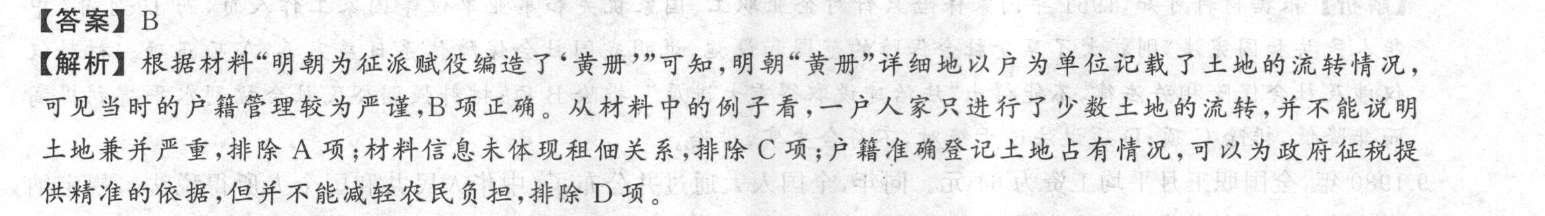 【答案】B
【解析】根据材料“明朝为征派赋役编造了‘黄册’”可知,明朝“黄册”详细地以户为单位记载了土地的流转情况,
可见当时的户籍管理较为严谨,B项正确。从材料中的例子看,一户人家只进行了少数土地的流转,并不能说明
土地兼并严重,排除A项;材料信息未体现租佃关系,排除C项;户籍准确登记土地占有情况,可以为政府征税提
供精准的依据,但并不能减轻农民负担,排除D项。